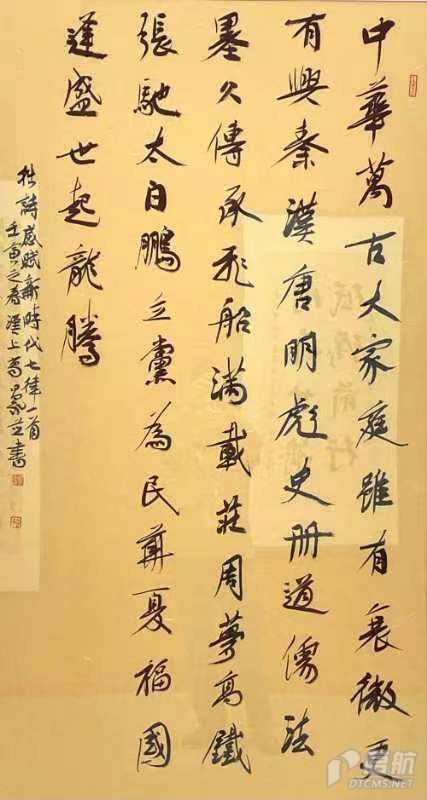 中華萬古大家庭雖有衰微更
有興秦漢唐明彪史冊道儒法
墨久傳承飛船滿載莊周夢高鐵
張馳太白鵬立黨為民華夏福國
運盛世起龍騰
拙詩感賦新時代七律一首
壬寅之春漢上書
启航
DTCMS.NET